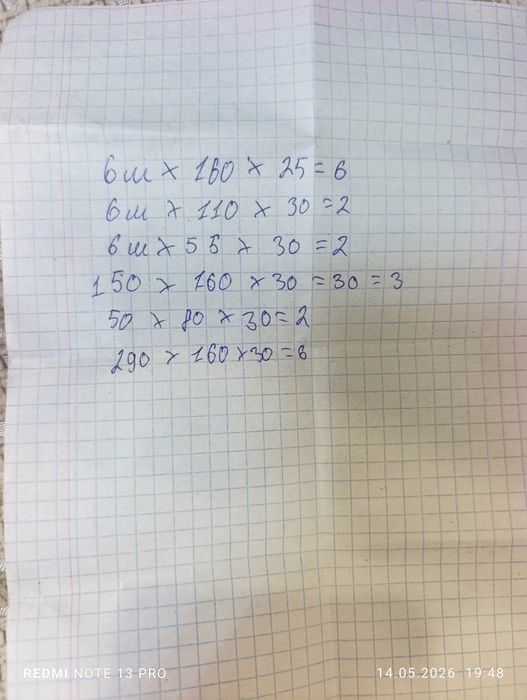 6м × 160 × 25 = 6
6м × 110 × 30 = 2
6м × 55 × 30 = 2
150 × 160 × 30 = 30 = 3
50 × 80 × 30 = 2
290 × 160 × 30 = 6
REDMI NOTE 13 PRO
14.05.2026 19:48